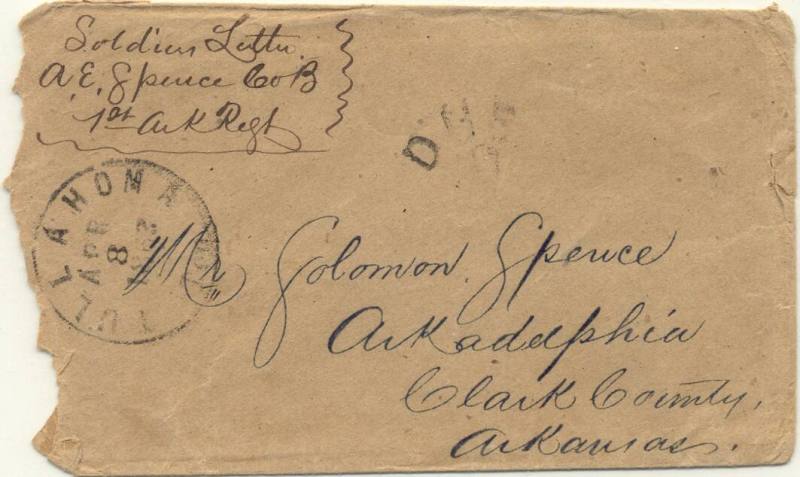 Soldiers Letter
A E, Spence Co B
1st Ark Regt
TULLAHOMA
APR
8
Mr Solomon Spence
Arkadelphia
Clark County,
Arkansas.